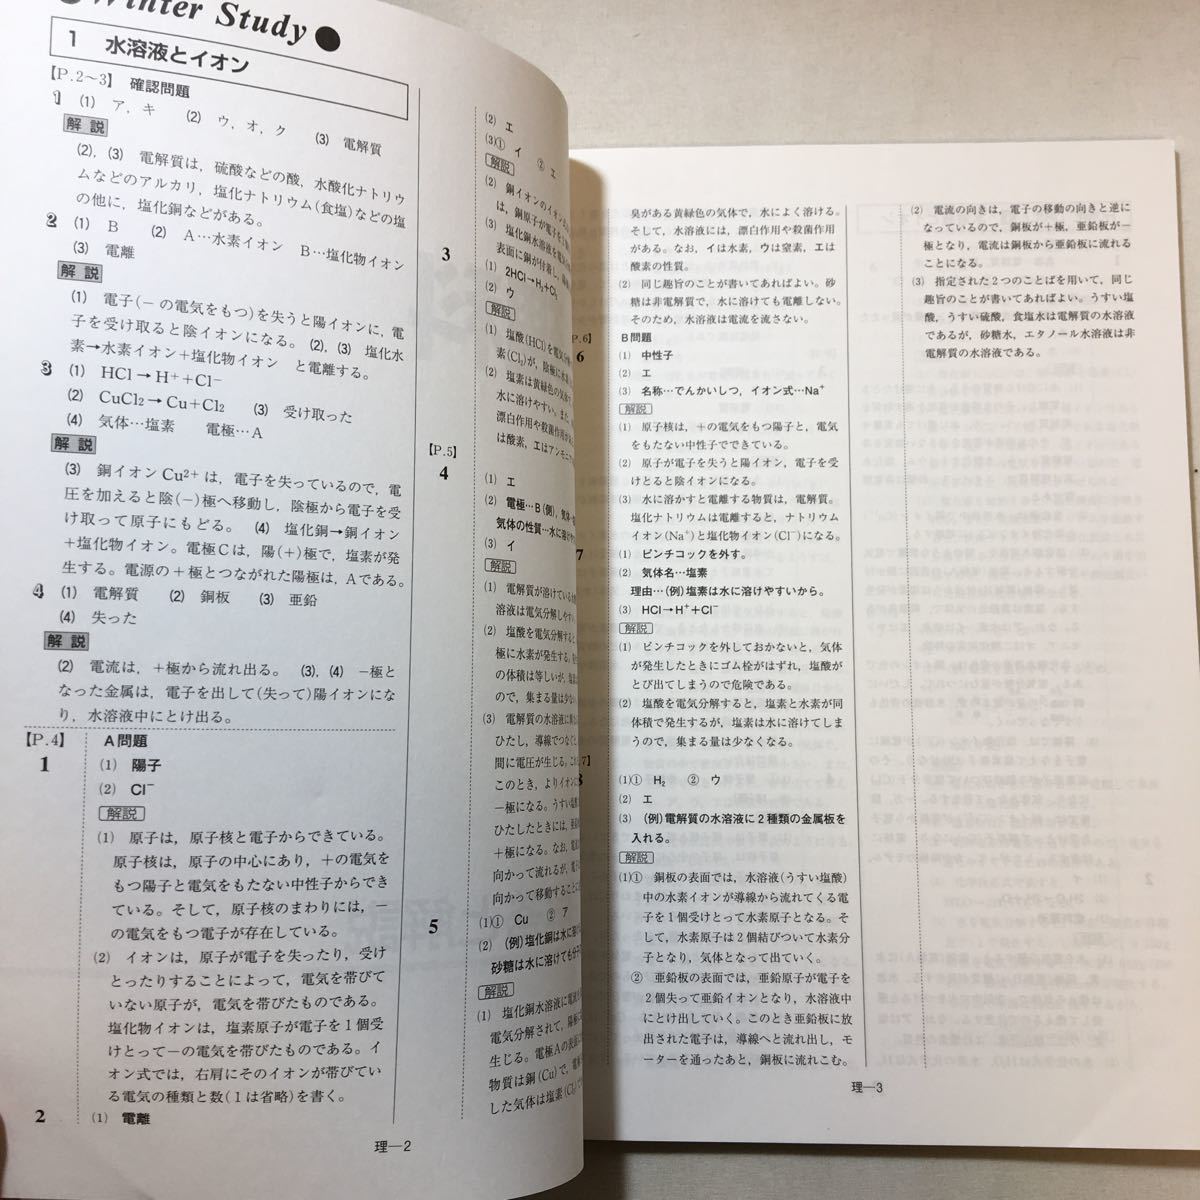 Winter Study●
1 水溶液とイオン
【P.2～3】 確認問題
1 (1) ア，キ (2) ウ，オ，ク (3) 電解質
解説
(2)，(3) 電解質は，硫酸などの酸，水酸化ナトリウ
ムなどのアルカリ，塩化ナトリウム(食塩)などの塩
の他に，塩化銅などがある。
2 (1) B (2) A…水素イオン B…塩化物イオン
(3) 電離
解説
(1) 電子(－の電気をもつ)を失うと陽イオンに，電
子を受け取ると陰イオンになる。(2)，(3) 塩化水
素→水素イオン＋塩化物イオン と電離する。
3 (1) HCl→H⁺＋Cl⁻
(2) CuCl₂→Cu＋Cl₂ (3) 受け取った
(4) 気体…塩素 電極…A
解説
(3) 銅イオンCu²⁺は，電子を失っているので，電
圧を加えると陰(－)極へ移動し，陰極から電子を受
け取って原子にもどる。 (4) 塩化銅→銅イオン
＋塩化物イオン。電極Cは，陽(＋)極で，塩素が発
生する。電源の＋極とつながれた陽極は，Aである。
4 (1) 電解質 (2) 銅板 (3) 亜鉛
(4) 失った
解説
(2) 電流は，＋極から流れ出る。 (3)，(4) －極と
なった金属は，電子を出して(失って)陽イオンにな
り，水溶液中にとけ出る。
【P.4】 A問題
1 (1) 陽子
(2) Cl⁻
解説
(1) 原子は，原子核と電子からできている。
原子核は，原子の中心にあり，＋の電気を
もつ陽子と電気をもたない中性子からでき
ている。そして，原子核のまわりには，－
の電気をもつ電子が存在している。
(2) イオンは，原子が電子を失ったり，受け
とったりすることによって，電気を帯びて
いない原子が，電気を帯びたものである。
塩化物イオンは，塩素原子が電子を１個受
けとって－の電気を帯びたものである。イ
オン式では，右肩にそのイオンが帯びてい
る電気の種類と数(１は省略)を書く。
2 (1) 電離
(2) エ
(3)① イ ② エ
解説
(2) 銅イオンのイオン
は，銅原子が電子を
(3) 塩化銅水溶液を電気
表面に銅が付着し，陽
3 (1) 2HCl→H₂＋Cl₂
(2) ウ
解説
(1) 塩酸(HCl)を電気分
素(Cl₂)が，陰極に水素
(2) 塩素は黄緑色の気体
水に溶けやすい。また，
漂白作用や殺菌作用が
は酸素，エはアンモニア
【P.5】
4 (1) エ
(2) 電極…B(側)，気体…
気体の性質…水に溶け
(3) イ
解説
(1) 電解質が溶けている
溶液は電気分解しやす
(2) 塩酸を電気分解すると
極に水素が発生する。
の体積は等しいが，塩
ので，集まる量は少な
(3) 電解質の水溶液に
ひたし，導線でつなぐ
間に電圧が生じる。
このとき，よりイオンに
－極になる。うすい塩酸
ひたしたときには，亜鉛
＋極になる。なお，電流
向かって流れるが，電子
向かって移動する
5 (1)① Cu ② ア
(2) (例)塩化銅は水に溶け
砂糖は水に溶けても
解説
(1) 塩化銅水溶液に電流
電気分解されて，陽極
生じる。電極Aの表面
物質は銅(Cu)で，電極
した気体は塩素(Cl₂)で
理―2
臭がある黄緑色の気体で，水によく溶ける。
そして，水溶液には，漂白作用や殺菌作用
がある。なお，イは水素，ウは窒素，エは
酸素の性質。
(2) 同じ趣旨のことが書いてあればよい。砂
糖は非電解質で，水に溶けても電離しない。
そのため，水溶液は電流を流さない。
P.6】 B問題
6 (1) 中性子
(2) エ
(3) 名称…でんかいしつ，イオン式…Na⁺
解説
(1) 原子核は，＋の電気をもつ陽子と，電気
をもたない中性子でできている。
(2) 原子が電子を失うと陽イオン，電子を受
けとると陰イオンになる。
(3) 水に溶かすと電離する物質は，電解質。
塩化ナトリウムは電離すると，ナトリウム
イオン(Na⁺)と塩化物イオン(Cl⁻)になる。
7 (1) ピンチコックを外す。
(2) 気体名…塩素
理由…(例)塩素は水に溶けやすいから。
(3) HCl→H⁺＋Cl⁻
解説
(1) ピンチコックを外しておかないと，気体
が発生したときにゴム栓がはずれ，塩酸が
とび出てしまうので危険である。
(2) 塩酸を電気分解すると，塩素と水素が同
体積で発生するが，塩素は水に溶けてしま
うので，集まる量は少なくなる。
7】
8 (1)① H₂ ② ウ
(2) エ
(3) (例)電解質の水溶液に２種類の金属板を
入れる。
解説
(1)① 銅板の表面では，水溶液(うすい塩酸)
中の水素イオンが導線から流れてくる電
子を１個受けとって水素原子となる。そ
して，水素原子は２個結びついて水素分
子となり，気体となって出ていく。
② 亜鉛板の表面では，亜鉛原子が電子を
２個失って亜鉛イオンとなり，水溶液中
にとけ出していく。このとき亜鉛板に放
出された電子は，導線へと流れ出し，モ
ーターを通ったあと，銅板に流れこむ。
(2) 電流の向きは，電子の移動の向きと逆に
なっているので，銅板が＋極，亜鉛板が－
極となり，電流は銅板から亜鉛板に流れる
ことになる。
(3) 指定された２つのことばを用いて，同じ
趣旨のことが書いてあればよい。うすい塩
酸，うすい硫酸，食塩水は電解質の水溶液
であるが，砂糖水，エタノール水溶液は非
電解質の水溶液である。
理―3